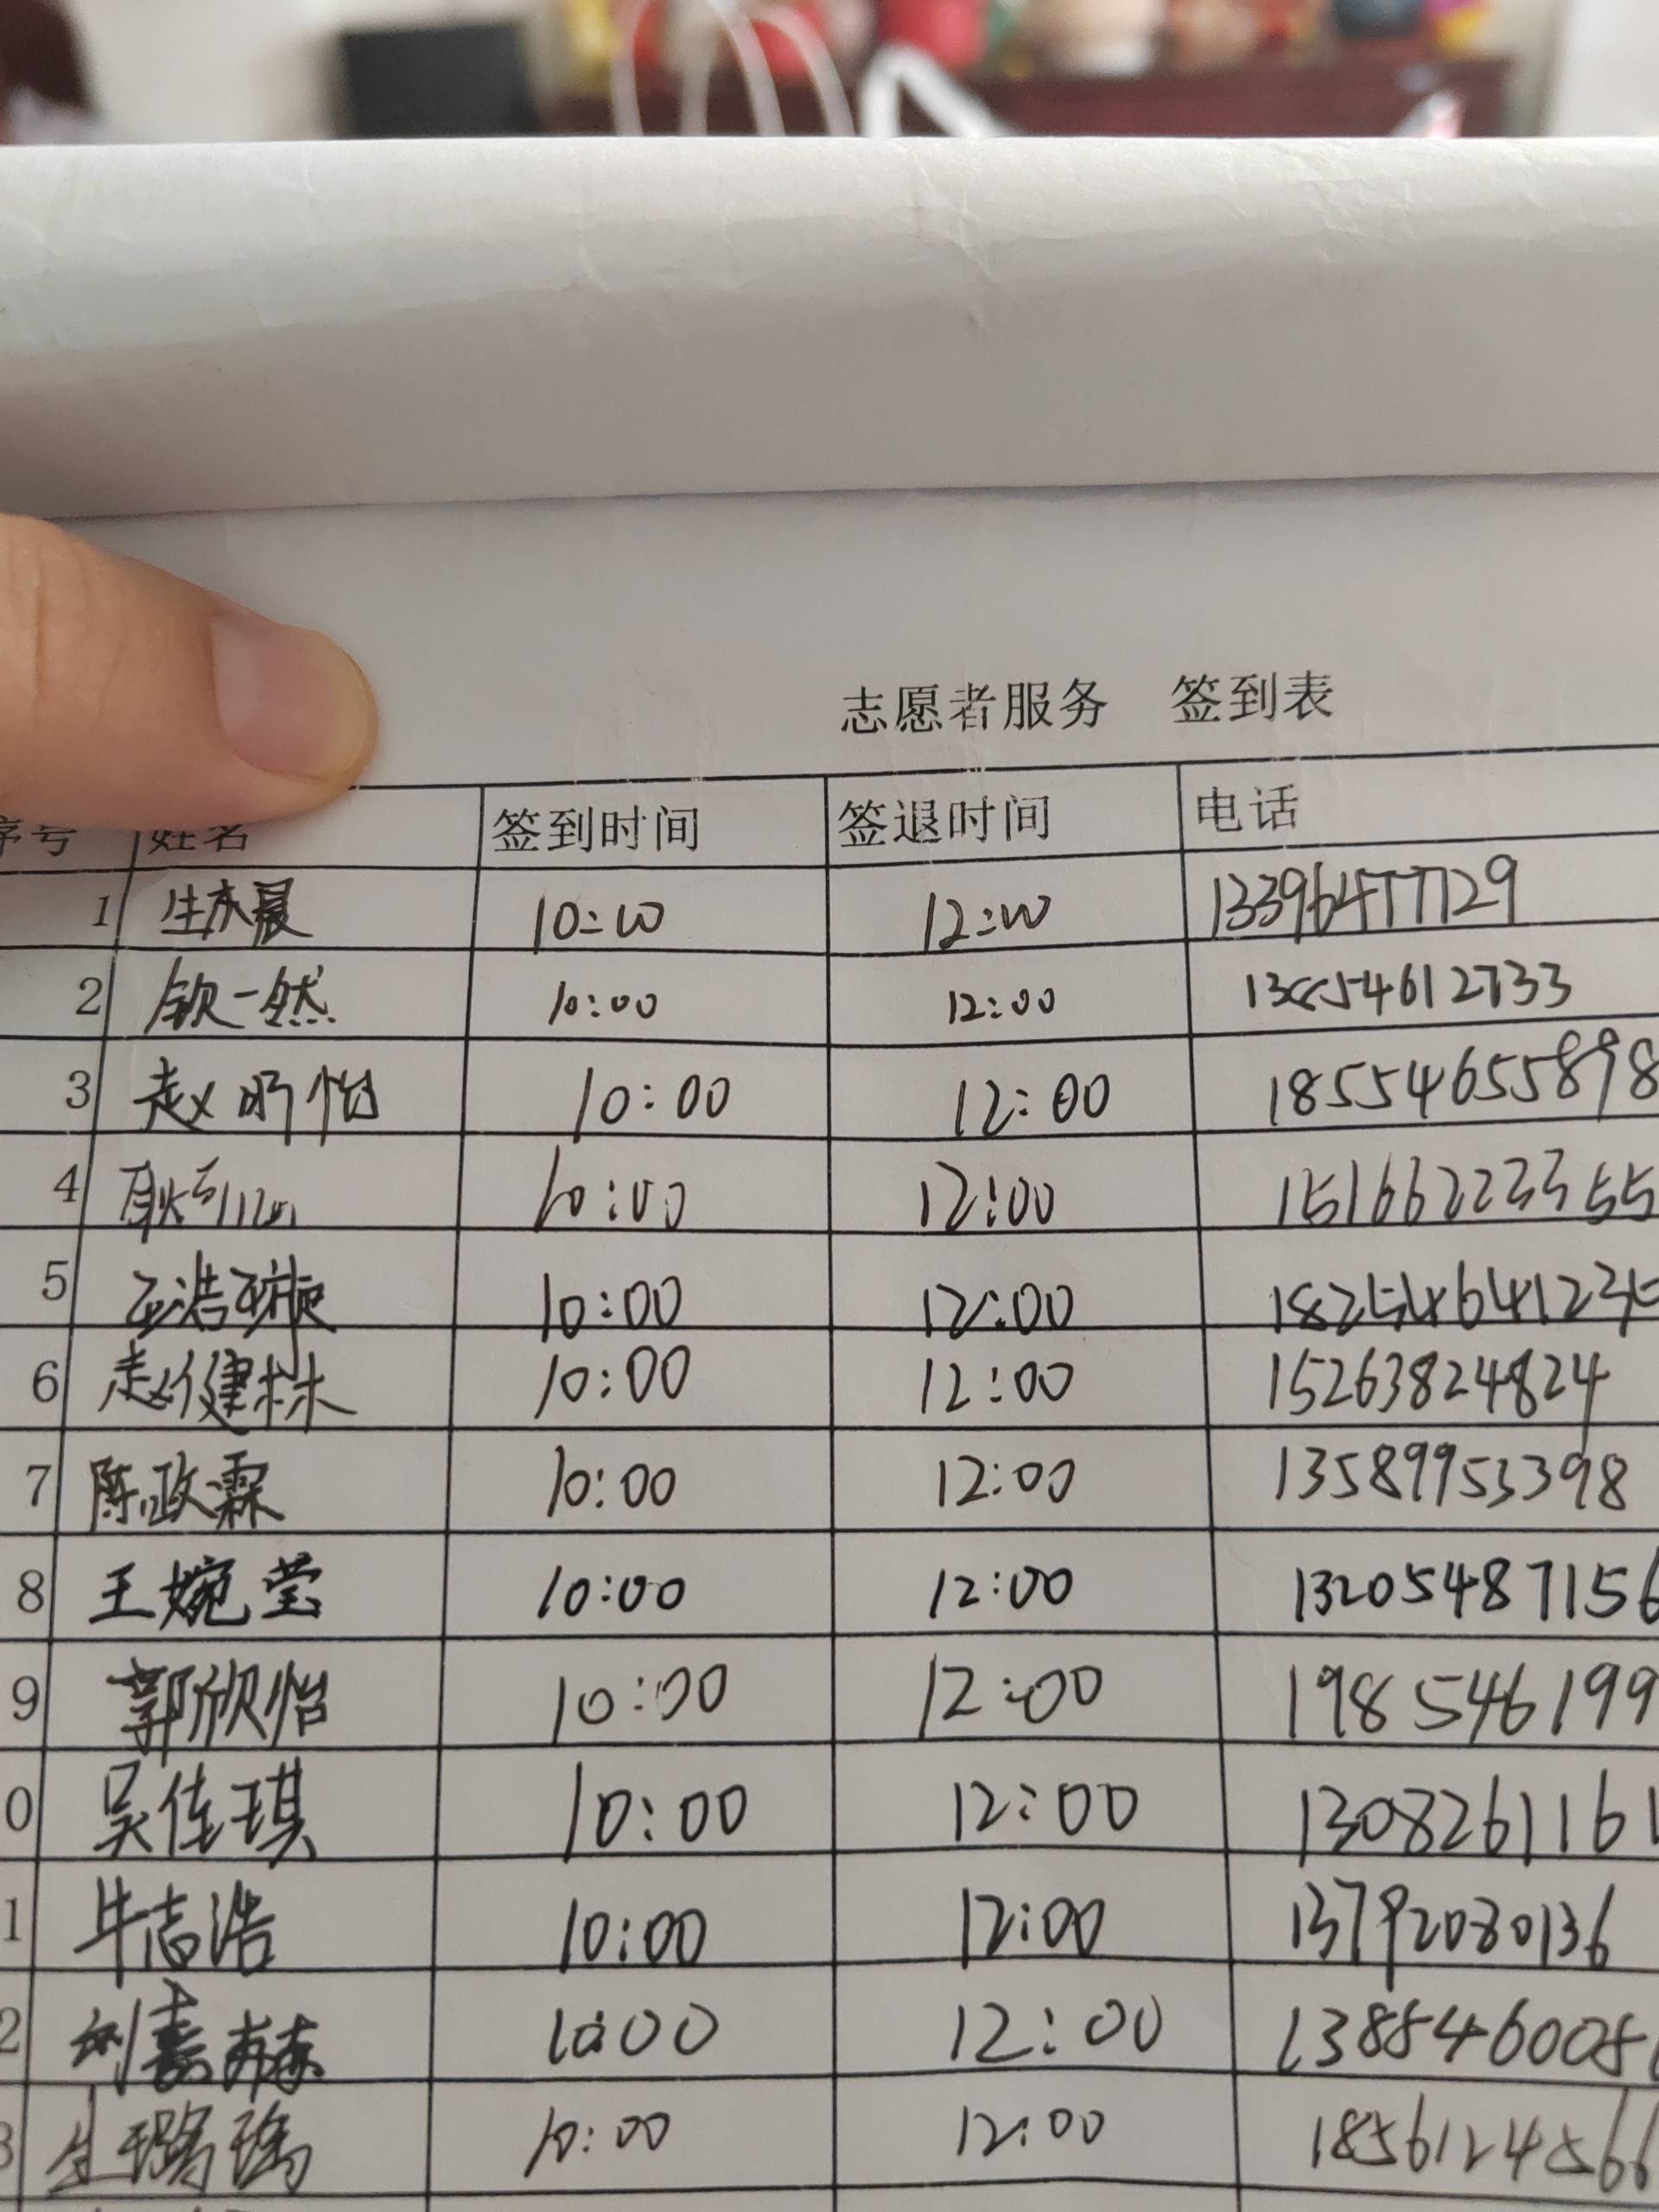 志愿者服务 签到表
序号 姓名 签到时间 签退时间 电话
1 生庆晨 10:00 12:00 13396477729
2 钦一然 10:00 12:00 13854612733
3 赵昕怡 10:00 12:00 18554655898
4 10:00 12:00 15166223355
5 王浩璇 10:00 12:00 182546412
6 赵健林 10:00 12:00 15263824824
7 陈政霖 10:00 12:00 13589953398
8 王婉莹 10:00 12:00 13205487156
9 郭欣怡 10:00 12:00 198546199
0 吴佳琪 10:00 12:00 1308261161
1 牛志浩 10:00 12:00 13792080136
2 刘嘉 10:00 12:00 1385460058
3 生璐瑶 10:00 12:00 18561124566